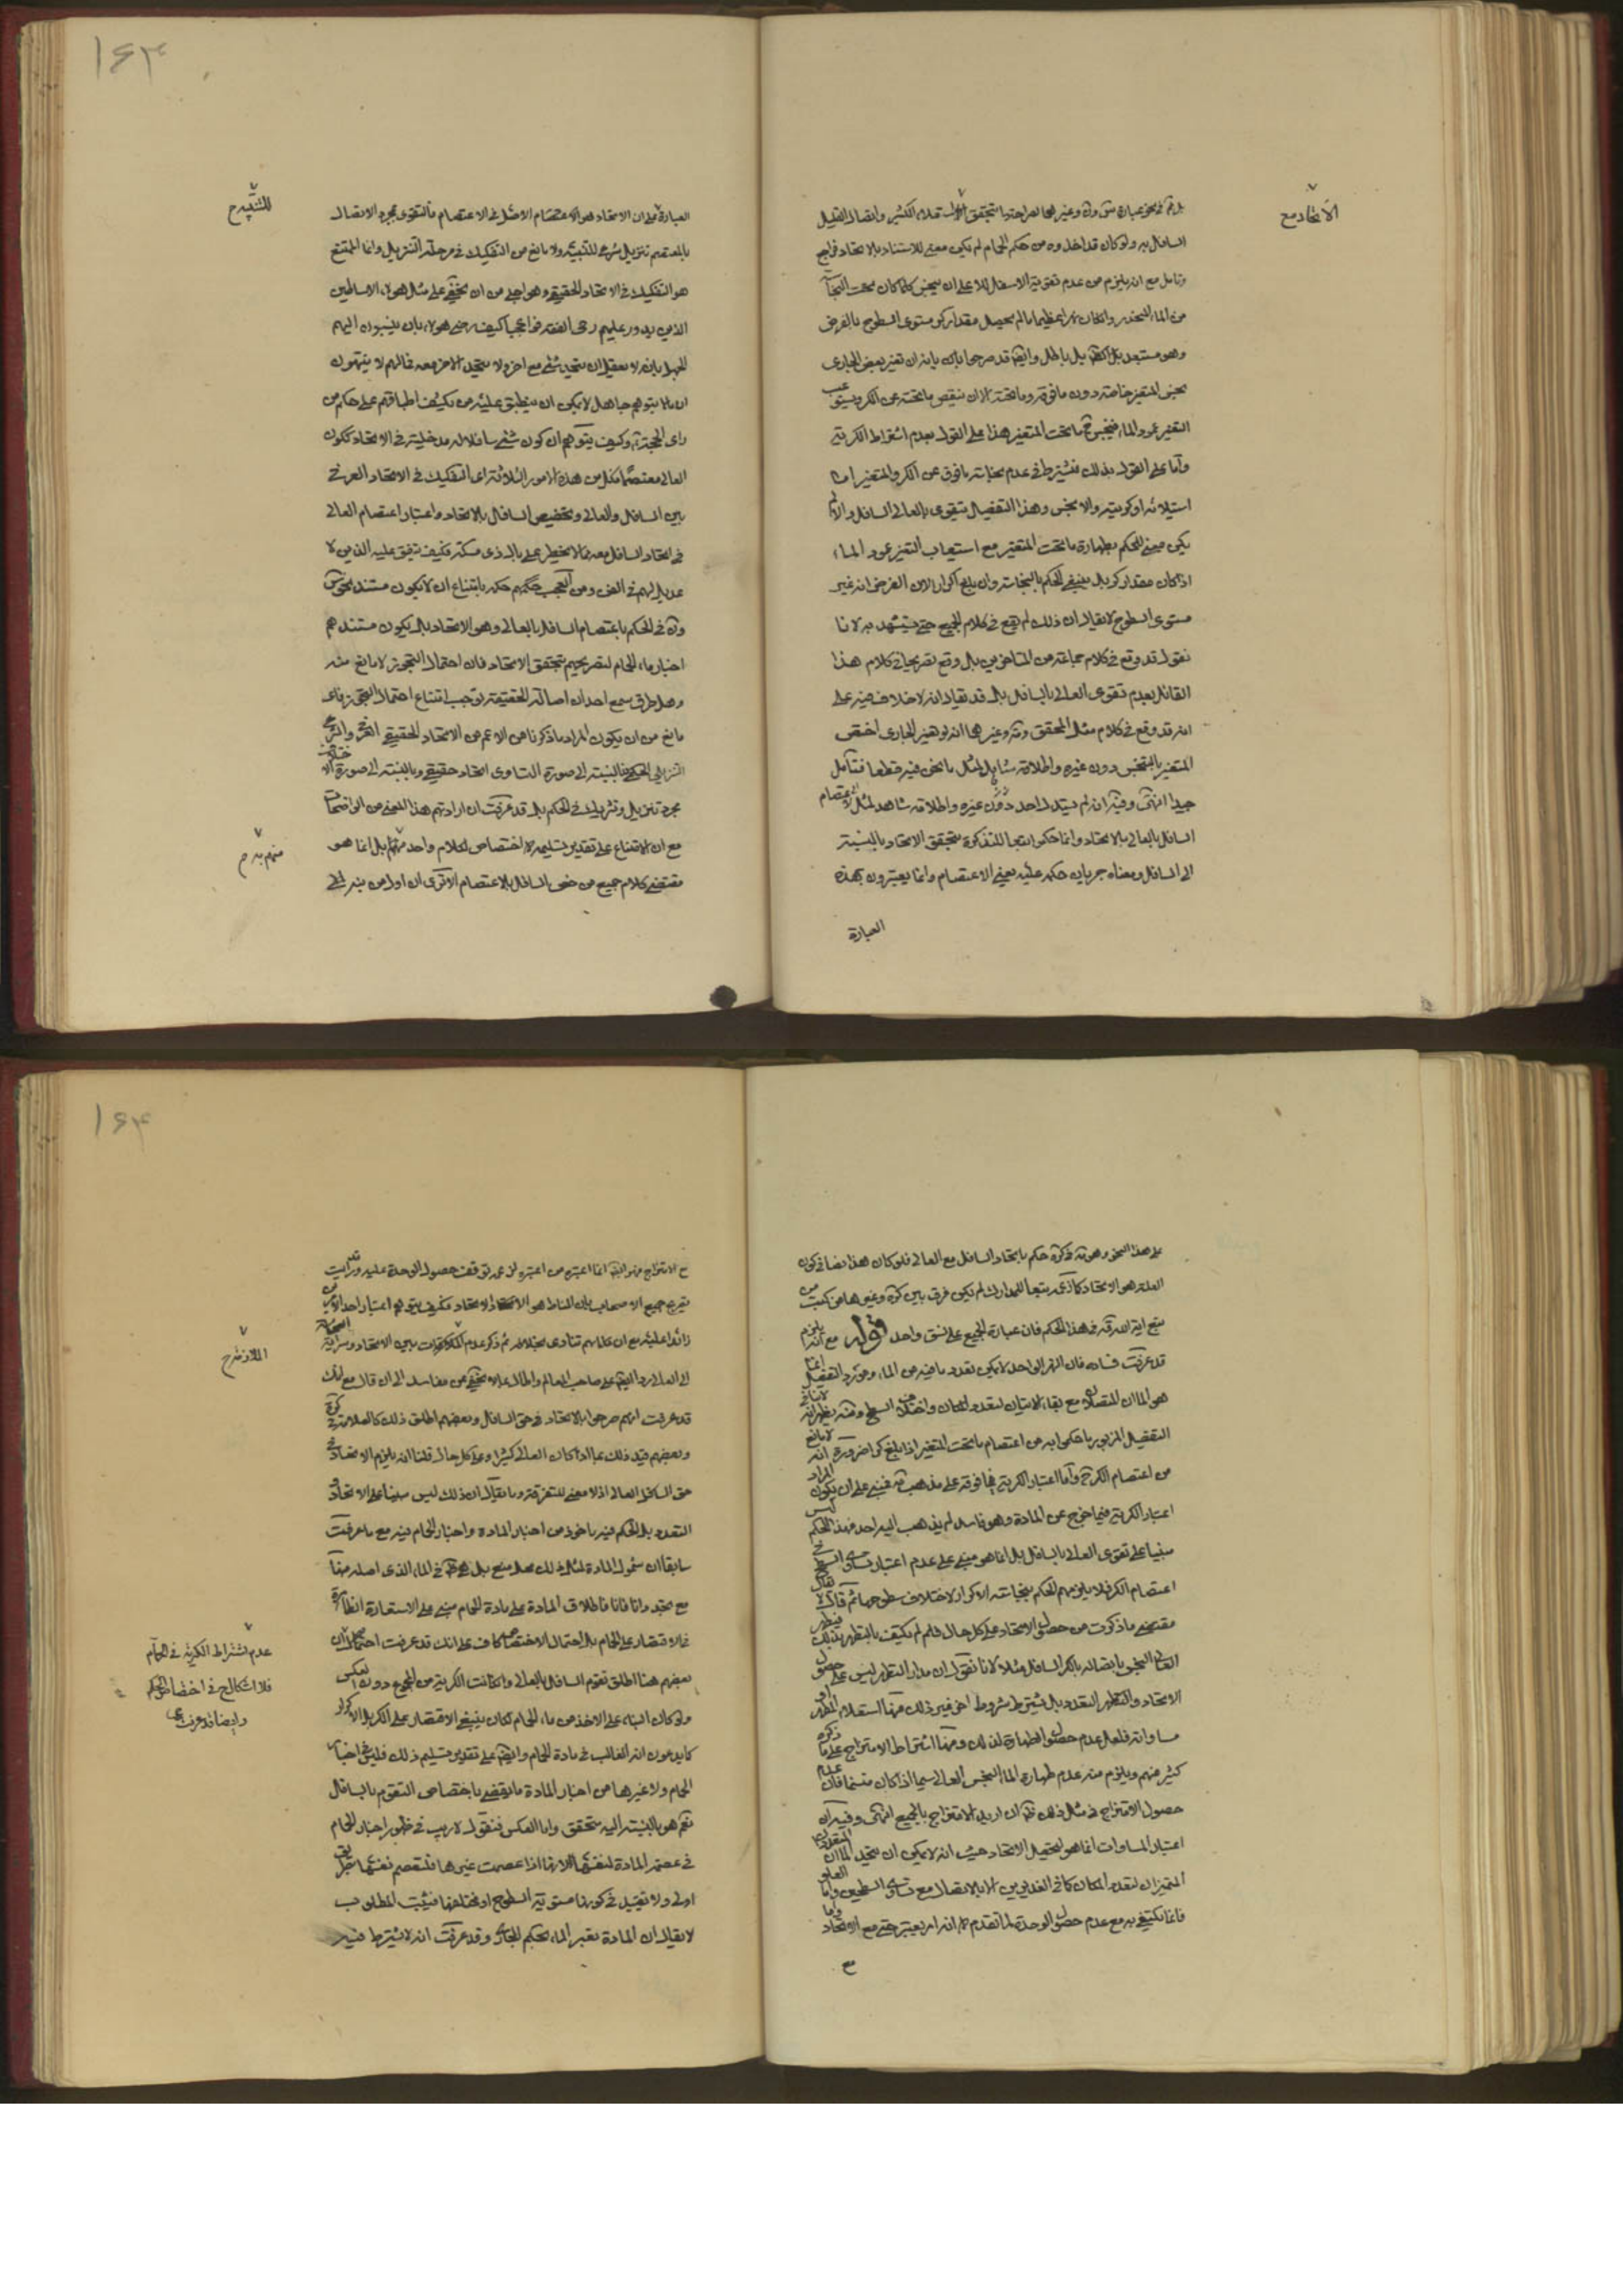 الاتحاد مع
السافل به ولو كان قد اخذوه من حكم الحمام لم يكن معنى للاستناد بالاتحاد فراجع
وتامل مع انه يلزم من عدم تقوية الاسفل للاعلى ان ينجس كلما كان تحت النجاسة
من الماء المنحدر وان كان نهرا عظيما ما لم يحصل مقدار كر مستوى السطوح بالفرض
وهو مستبعد بل الظ بل باطل وايضا قد صرحوا بان تغير بعض الجارى
ينجس المتغير خاصة دون ما فوقه وما تحته الا ان ينقص ما تحته عن الكر ويستوعب
التغير عمود الماء فينجس ح ما تحت المتغير هذا على القول بعدم اشتراط الكرية
واما على القول بذلك فيشترط في عدم نجاسة ما فوق عن الكر والمتغير اما
استيلائه او كريته والا نجس وهذا التفصيل بتقوى بالعالى السافل والا لم
يكن معنى للحكم بطهارة ما تحت المتغير مع استيعاب التغير عمود الماء
اذا كان مقدار كر بل ينبغى الحكم بالنجاسة وان بلغ اكرار الان الفرض انه غير
مستوى السطوح لا يقال ان ذلك لم يقع في كلام الجميع حتى يستشهد به لانا
نقول قد وقع في كلام جماعة من المتاخرين بل وقع تصريحا في كلام هذا
القائل بعدم تقوى العالى بالسافل بل قد يقال انه لا خلاف فيه على
انه قد وقع في كلام مثل المحقق وته وغيرهما انه لو تغير الجارى اختص
المتغير بالتنجس دون غيره واطلاقه شامل لمثل ما نحن فيه قطعا فتامل
جيدا انتهى وفيه ان لم يستدل احد دون غيره واطلاقه شاهد لمثل الاعتصام
السافل بالعالى بالاتحاد وانما حكوا تبعا للتذكرة بتحقق الاتحاد بالنسبة
الى السافل ومعناه جريان حكمه عليه يعنى الاعتصام وانما يعبرون بهذه
العبارة
۱۶۳
للتنقيح
العبارة على ان الاتحاد هو الاعتصام الاصل في الاعتصام فالتقوى بمجرد الاتصال
بالمعتصم تنزيل شرعى للتبعية ولا مانع من التفكيك في مرحلة التنزيل وانما الممتنع
هو التفكيك في الاتحاد الحقيقي وهو اجلى من ان يخفى على مثل هؤلاء الاساطين
الذين يدور عليهم رحى الفقه فوا عجبا كيف رضى هؤلاء بان ينسبون اليهم
الجهل بان لا يعقل ان يتحد شئ مع اخر ولا يتحد الاخر معه فما لهم لا ينتهون
ان ما لا يتوهم جاهل لا يمكن ان ينطبق عليه من يكشف اطباقهم على حكم من
راى الحجة وكيف يتوهم ان كون شئ سافلا له مدخلية في الاتحاد ككون
العالى معتصما فكل من هذه الامور الثلاثة اعنى التفكيك في الاتحاد العرفى
بين السافل والعالى وتخصيص السافل بالاتحاد واعتبار اعتصام العالى
في اتحاد السافل معه مما لا يخطر على بال ذى مسكة فكيف يتفق عليه الذين لا
عديل لهم في الفن ومن العجب حكمه بامتناع ان لا يكون مستند المحقق
وته في الحكم باعتصام السافل بالعالى وهو الاتحاد بل يكون مستندهم
اخبار ماء الحمام لتصريحهم بتحقق الاتحاد فان احتمال التجوز لا مانع منه
وهل طرق سمع احد ان اصالة الحقيقة توجب امتناع احتمال التجوز فاى
مانع من ان يكون المراد ما ذكرنا من الاعم من الاتحاد الحقيقي العرفى والشرعى
التنزيلى الحكمى فبالنسبة الى صورة التساوى اتحاد حقيقى وبالنسبة الى صورة الاختلاف
مجرد تنزيل وتشريك في الحكم بل قد عرفت ان ارادتهم هذا المعنى من الواضحات
منهم به م
مع ان الامتناع على تقدير تسليمه لا اختصاص لكلام واحد منهم بل انما هو
مقتضى كلام جميع من خص السافل بالاعتصام الا ترى ان اول من نبه
على هذا النحو وهو ته في كره حكم باتحاد السافل مع العالى فلو كان هذا نصا في كون
العلة هو الاتحاد كما ذكره تبعا للمدارك لم يكن فرق بين كره وغيرها من كتب
منع اية الله قه في هذا الحكم فان عبارة الجميع على نسق واحد قوله مع انه يلزم
قد عرفت فساده فان النهر الواحد لا يمكن تعدد ما فيه من الماء ومورد التفصيل انما
هو الماءان المتصلان مع بقاء الامتياز لتعدد المكان واختلاف السطح ومنه يظهر انه لا ينافى
التفصيل المزبور ما حكموا به من اعتصام ما تحت المتغير اذا بلغ كرا ضرورة انه لا مانع
من اعتصام الكر ح واما اعتبار الكرية فيما فوقه على مذهب ته فمبنى على ان يكون المراد
اعتبار الكرية فيما خرج عن المادة وهو فاسد لم يذهب اليه احد فهذا الحكم ليس
مبنيا على تقوى العالى بالسافل بل انما هو مبنى على عدم اعتبار تساوى السطح في
اعتصام الكر فلا يلزمهم الحكم بنجاسة الاكرار لاختلاف سطوحها ثم قال لا يقال
مقتضى ما ذكرت من حصول الاتحاد على كل حال فلم لم يكتف بالتطهر بذلك فيطهر
العالى النجس باتصاله بالكر السافل مثلا لانا نقول ان مدار التطهر ليس على حصول
الاتحاد والتطهر المتعدد بل يشترط شروط اخر فيه ذلك منها استعلاء المطهر او
مساواته فلعل عدم حصول الطهارة لذلك ومنها اشتراط الامتزاج على ما ذكره
كثير منهم ويلزم منه عدم طهارة الماء النجس العالى سيما اذا كان متسنما فان عدم
حصول الامتزاج في مثل ذلك ظ ان اريد الامتزاج بالجميع انتهى وفيه ان
اعتبار المساوات انما هو لتحصيل الاتحاد حيث انه لا يمكن ان يتحد الماءان المتعددان
المتميزان لتعدد المكان كما في الغديرين الا بالاتصال مع تساوى السطحين واما العلو
فانما نكتفى به مع عدم حصول الوحدة لما تقدم لا انه امر يعتبر حتى مع الاتحاد واما
مع
۱۶۴
ح الامتزاج فهو ايضا انما اعتبره من اعتبره لزعمه توقف حصول الوحدة عليه وقد رايت
تصريح جميع الاصحاب بان المناط هو الاتحاد فكيف يتوهم اعتبار احد الامرين
زائدا عليه مع ان كلماتهم تنادى بخلافه ثم ذكر عدم الملازمة بين الاتحاد وسراية النجاسة
الملازمة ح
الى العالى ردا ايضا على صاحب المعالم واطال بما لا يخفى من مفاسد الى ان قال مع انك
قد عرفت انهم صرحوا بالاتحاد في حق السافل وبعضهم اطلق ذلك كالعلامة في كره
وبعضهم قيد ذلك بما اذا كان العالى كثيرا وعلى كل حال قلنا انه يلزم الاتحاد في
حق السافل العالى اذ لا معنى للتفرقة وما يقال ان ذلك ليس مبنيا على الاتحاد و
التعدد بل الحكم فيه ماخوذ من اخبار المادة واخبار الحمام فيه مع ما عرفت
سابقا ان شمول المادة لمثل ذلك محل منع بل هو ظ في الماء الذى اصله منها
مع تجدد انا فانا فاطلاق المادة على مادة الحمام مبنى على الاستعارة الظاهرة
فالاقتصار على الحمام بل احتمال الاختصاص كاف على انك قد عرفت احتمال ان
عدم اشتراط الكرية في الحمام
فلا اشكال ح في اختصاص الحكم
وايضا قد عرفت
بعضهم هنا اطلق تقوم السافل بالعالى وان كانت الكرية من المجموع دون العكس
ولو كان البناء على الاخذ من ماء الحمام لكان ينبغى الاقتصار على الكر بل الاكرار
كما يدعون انه الغالب في مادة الحمام وايضا على تقدير تسليم ذلك فليس في اخبار
الحمام ولا غيرها من اخبار المادة ما يقضى باختصاص التقوم بالسافل
نعم هو بالنسبة اليه متحقق واما العكس فنقول لا ريب في ظهور اخبار الحمام
في عصمة المادة لنفسها لانها اذا عصمت غيرها فلتعصم نفسها بطريق
اولى ولا تقييد في كونها مستوية السطوح او مختلفها فيثبت المطلوب
لا يقال ان المادة تصير الماء بحكم الجارى وقد عرفت انه لا يشترط فيه